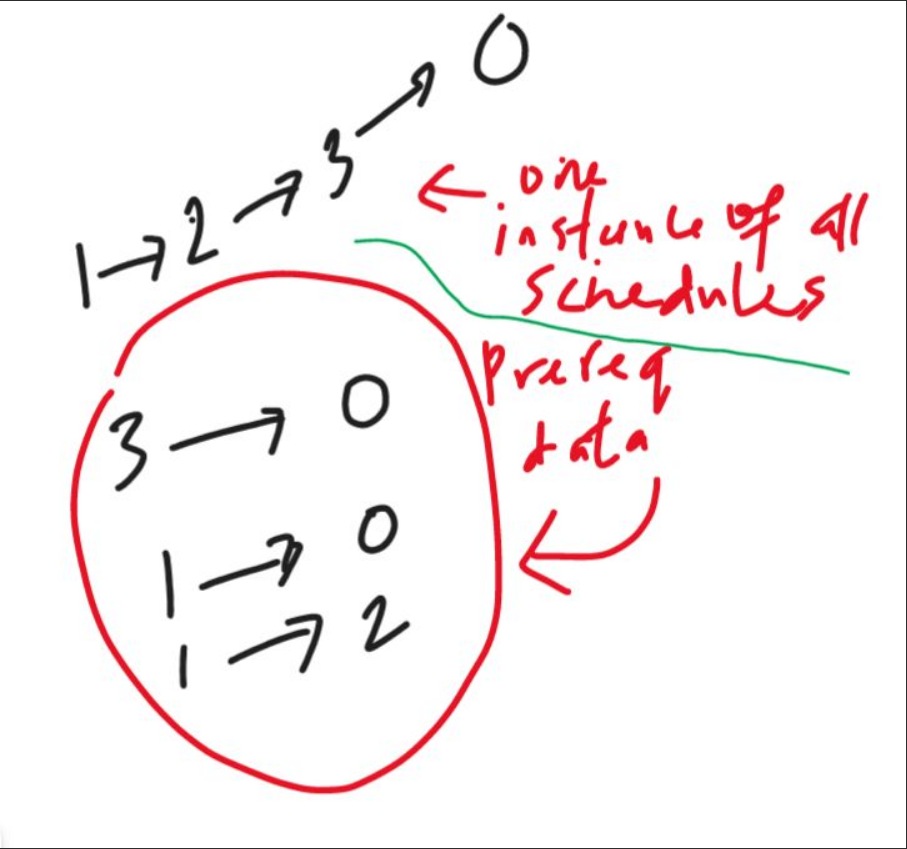 1 → 2 → 3 → 0
← one
instance of all
schedules
prereq
data
3 → 0
1 → 0
1 → 2